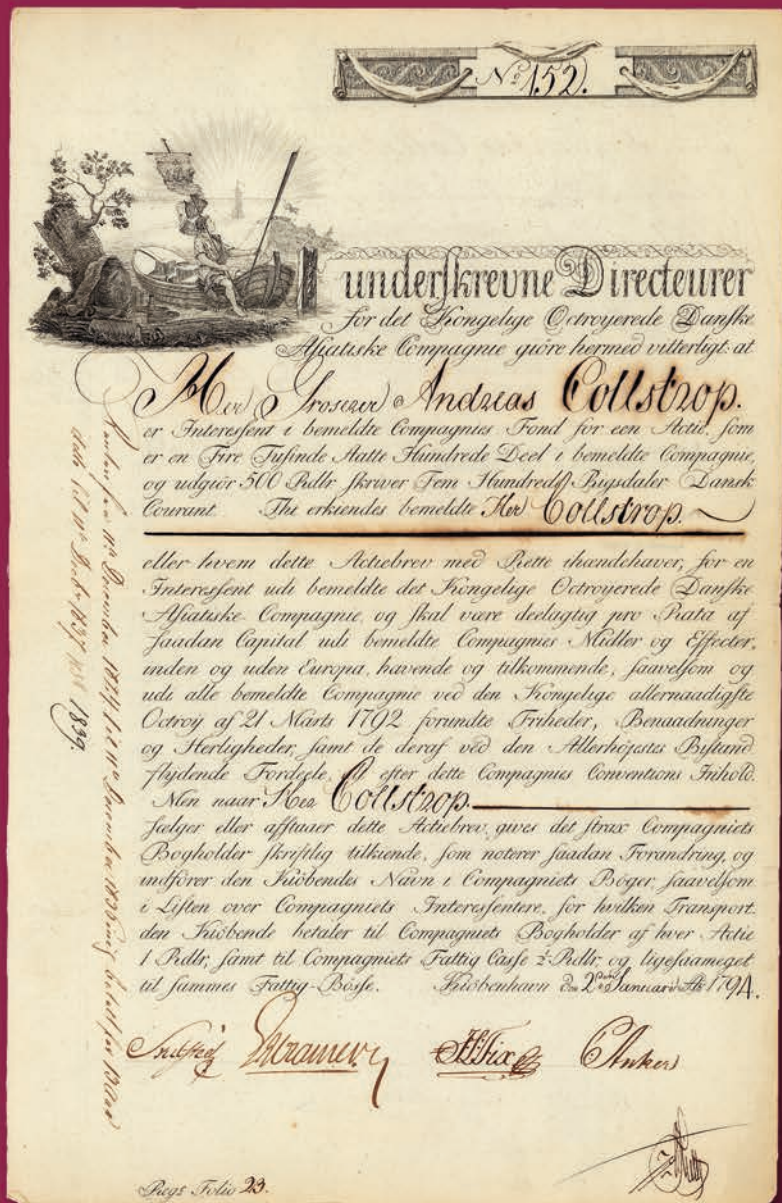 No. 152.
underskrevne Directeurer
for det Kongelige Octroyerede Danske
Asiatiske Compagnie giöre hermed vitterligt: at
Her Grosserer Andreas Collstrop.
er Interessent i bemeldte Compagnies Fond for een Actie, som
er en Fire Tusinde Aatte Hundrede Deel i bemeldte Compagnie,
og udgiör 500 Rdlr skriver Fem Hundrede Rigsdaler Dansk
Courant. Thi erkiendes bemeldte Her Collstrop.
eller hvem dette Actiebrev med Rette ihændehaver, for en
Interessent udi bemeldte det Kongelige Octroyerede Danske
Asiatiske Compagnie, og skal være deelagtig pro Rata af
saadan Capital udi bemeldte Compagnies Midler og Effecter,
inden og uden Europa, havende og tilkommende, saavelsom og
udi alle bemeldte Compagnie ved den Kongelige allernaadigste
Octroy af 21 Marts 1792 forundte Friheder, Benaadninger
og Herligheder, samt de deraf ved den Allerhöjestes Bistand
flydende Fordeele, efter dette Compagnies Conventions Inhold.
Men naar Her Collstrop.
sælger eller afstaaer dette Actiebrev, gives det strax Compagniets
Bogholder skriftlig tilkiende, som noterer saadan Forandring, og
indförer den Kiöbendes Navn i Compagniets Böger, saavelsom
i Listen over Compagniets Interessentere, for hvilken Transport
den Kiöbende betaler til Compagniets Bogholder af hver Actie
1 Rdlr, samt til Compagniets Fattig Casse 2 Rdlr, og ligesaameget
til sammes Fattig-Bösse. Kiöbenhavn den 2den Januarii Ao 1794.
Cramer
Fix CAnker
Regs Folio 23.
1839.